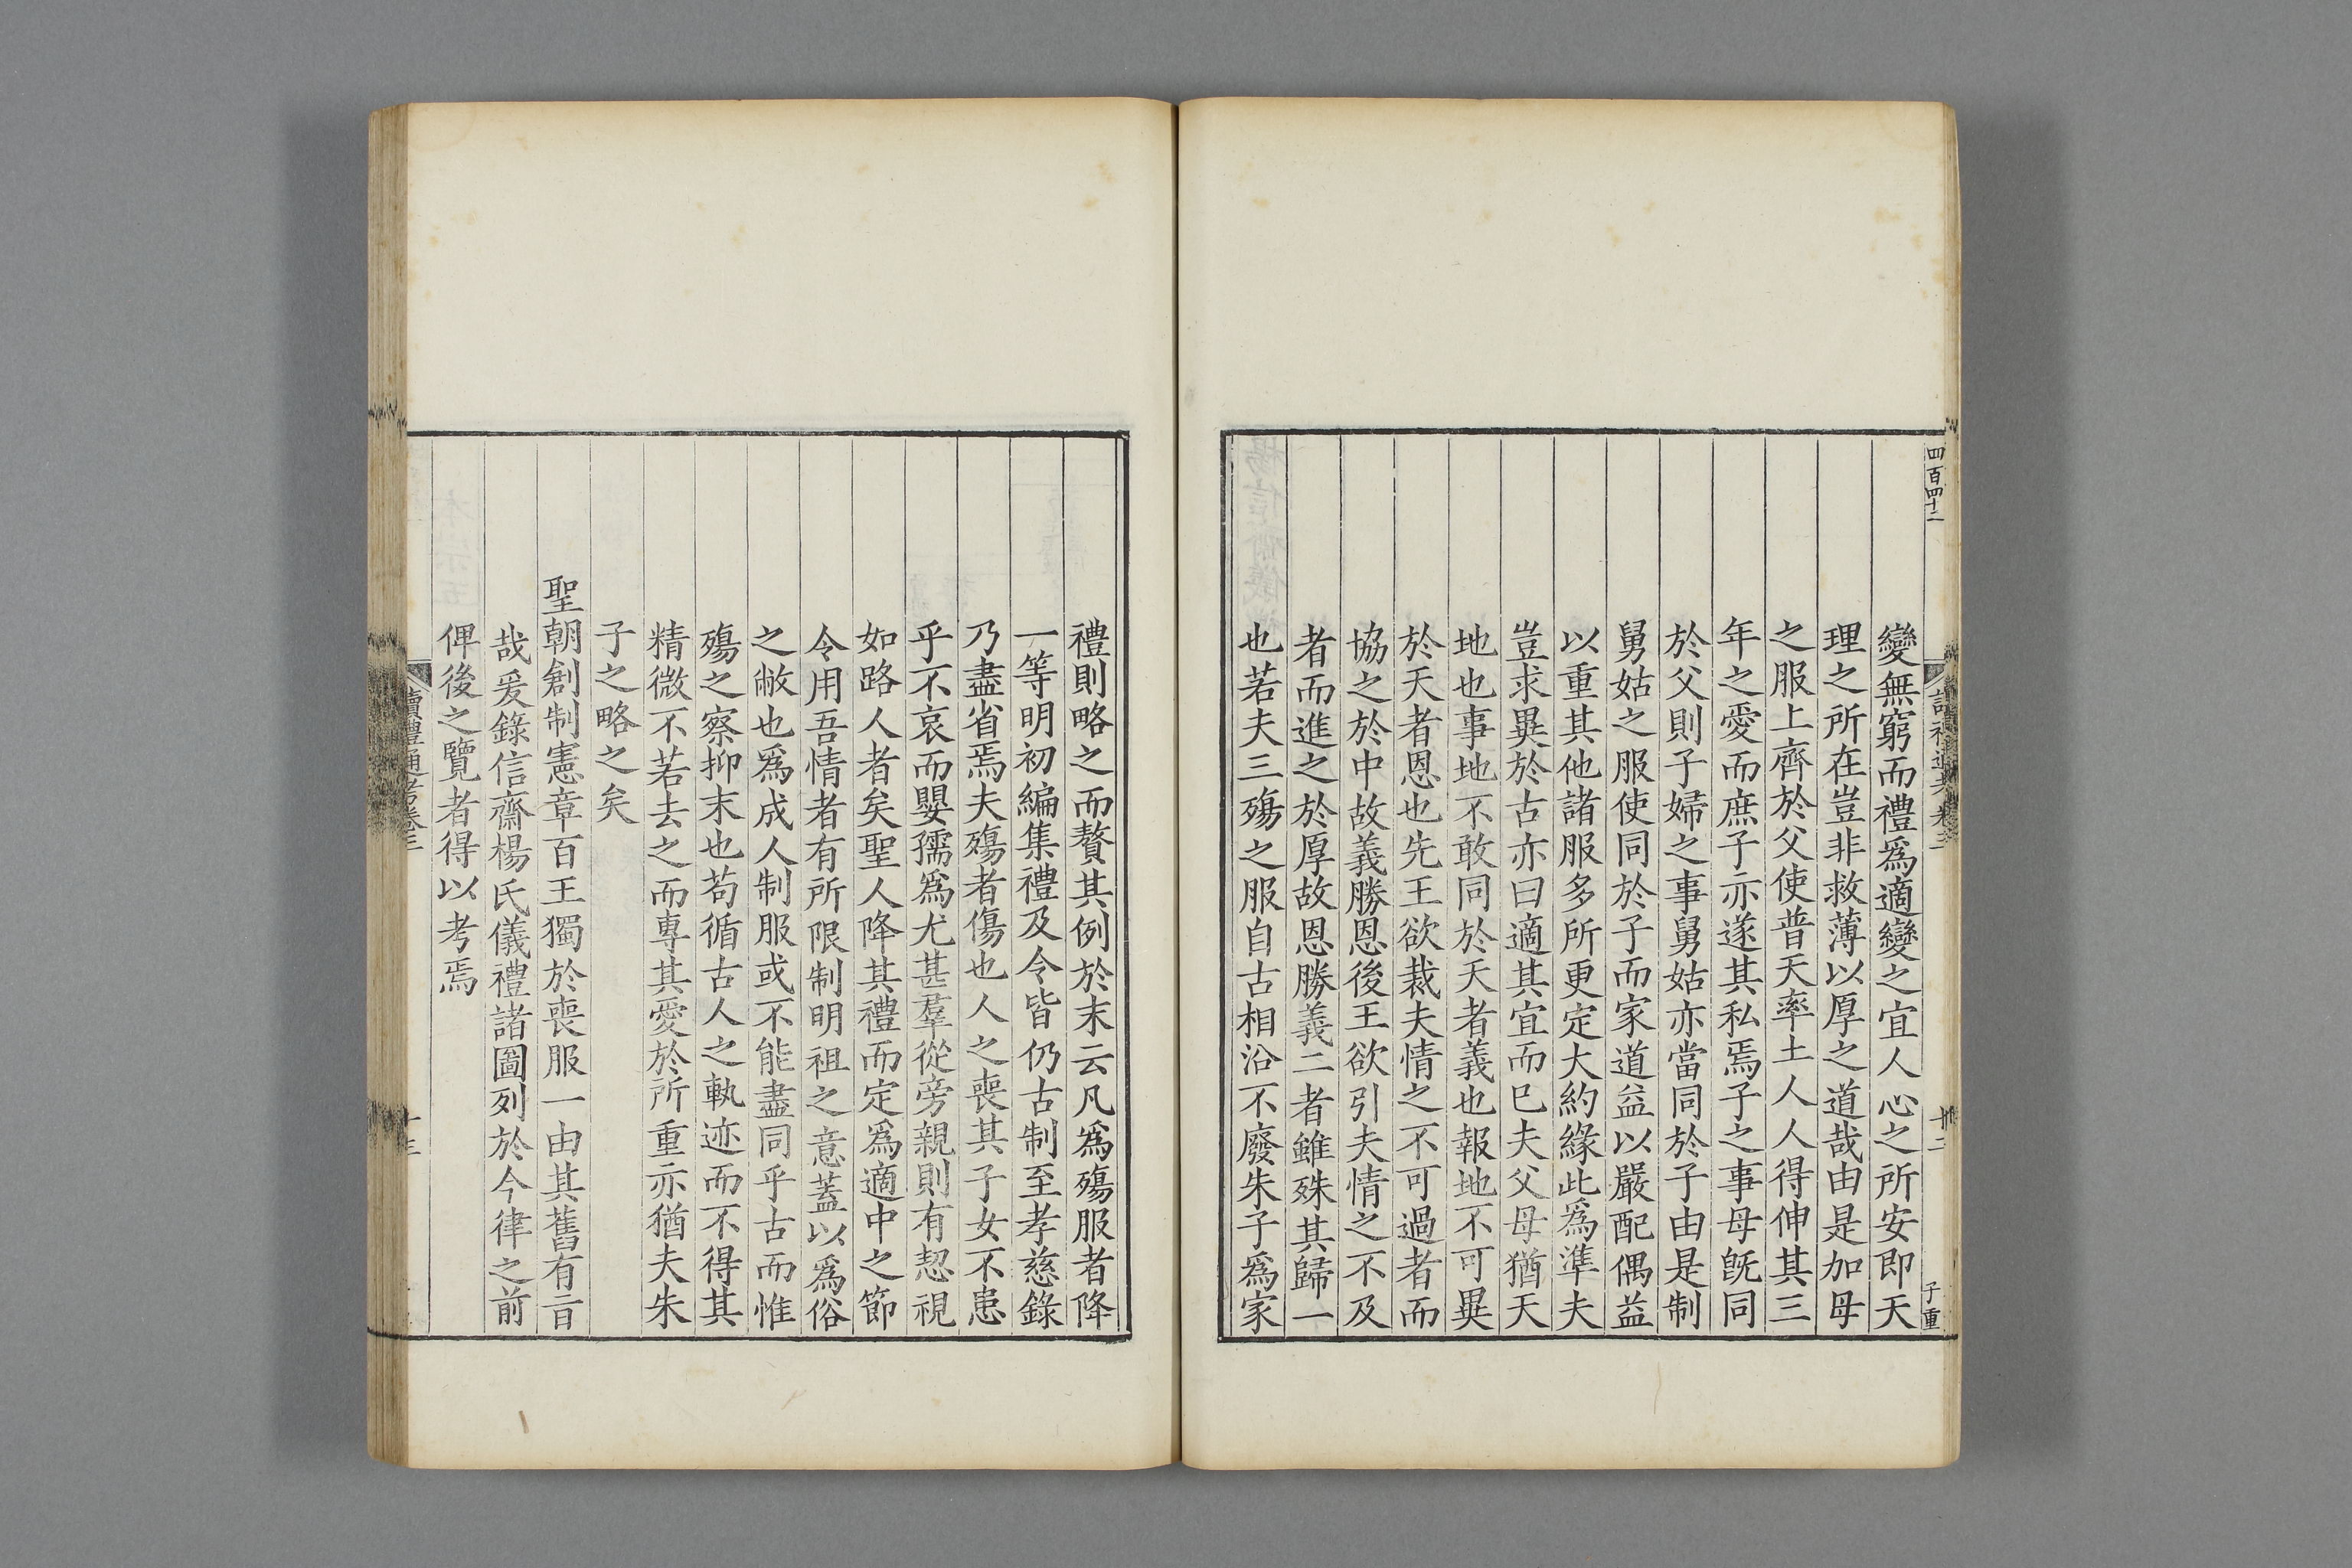 四百四十二
讀禮通考卷三
廿二
子重
變無窮而禮爲適變之宜人心之所安即天
理之所在豈非救薄以厚之道哉由是加母
之服上齊於父使普天率土人人得伸其三
年之愛而庶子亦遂其私焉子之事母旣同
於父則子婦之事舅姑亦當同於子由是制
舅姑之服使同於子而家道益以嚴配偶益
以重其他諸服多所更定大約緣此爲準夫
豈求異於古亦曰適其宜而已夫父母猶天
地也事地不敢同於天者義也報地不可異
於天者恩也先王欲裁夫情之不可過者而
協之於中故義勝恩後王欲引夫情之不及
者而進之於厚故恩勝義二者雖殊其歸一
也若夫三殤之服自古相沿不廢朱子爲家
禮則略之而贅其例於末云凡爲殤服者降
一等明初編集禮及令皆仍古制至孝慈錄
乃盡省焉夫殤者傷也人之喪其子女不患
乎不哀而嬰孺爲尤甚羣從旁親則有恝視
如路人者矣聖人降其禮而定爲適中之節
令用吾情者有所限制明祖之意蓋以爲俗
之敝也爲成人制服或不能盡同乎古而惟
殤之察抑末也苟循古人之軌迹而不得其
精微不若去之而專其愛於所重亦猶夫朱
子之略之矣
聖朝創制憲章百王獨於喪服一由其舊有旨
哉爰錄信齋楊氏儀禮諸圖列於今律之前
俾後之覽者得以考焉
讀禮通考卷三